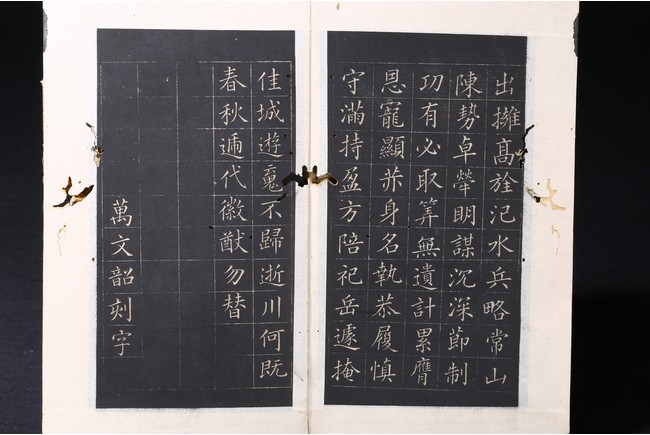 出擁高旌氾水兵略常山
陳勢卓犖明謀沉深節制
功有必取筭無遺計累膺
恩寵顯身名執恭履慎
守滿持盈方陪祀岳遽掩
佳城遊魂不歸逝川何既
春秋遞代徽猷勿替
萬文韶刻字